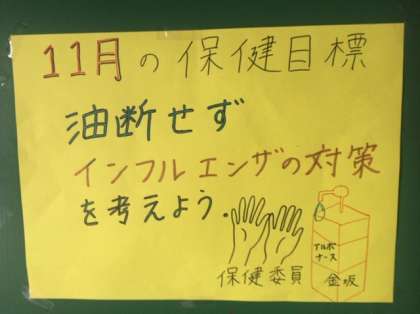 11月の保健目標
油断せず
インフルエンザの対策
を考えよう.
保健委員
アルボ
ナース
金坂